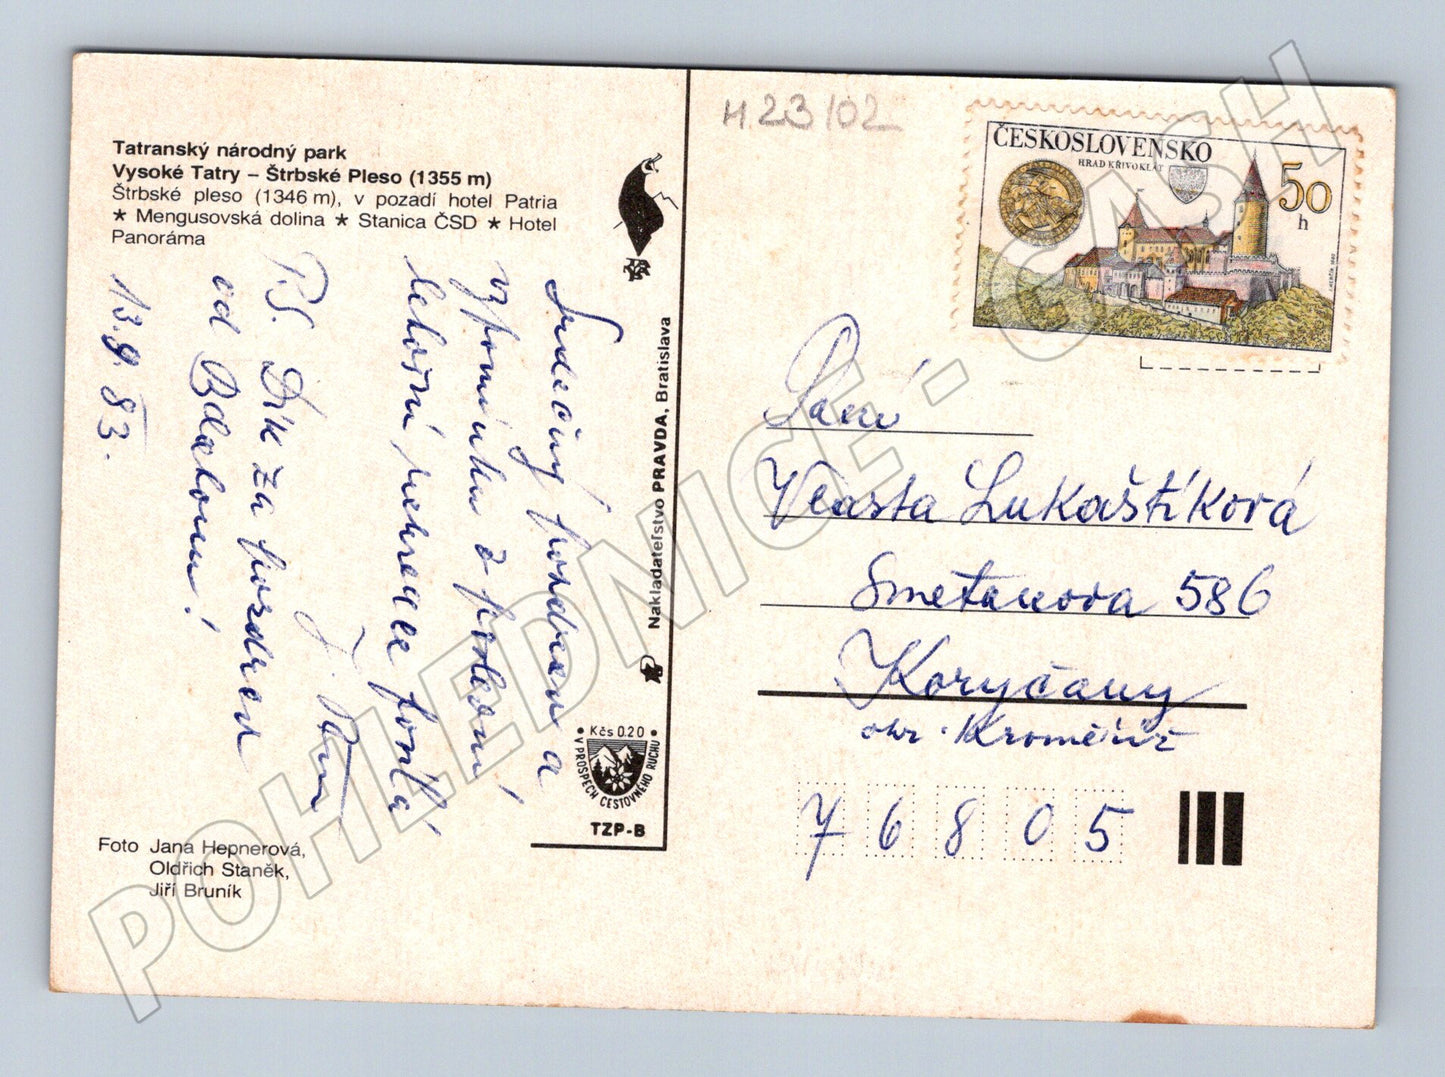 H.23/02
Tatranský národný park
Vysoké Tatry – Štrbské Pleso (1355 m)
Štrbské pleso (1346 m), v pozadí hotel Patria
★ Mengusovská dolina ★ Stanica ČSD ★ Hotel
Panoráma
Srdečný pozdrav a
vzpomínku z
letošní rekreace
P.S. Dík za pozdrav
od Balatonu!
13.9.83.
Foto Jana Hepnerová,
Oldřich Staněk,
Jiří Bruník
Nakladateľstvo PRAVDA, Bratislava
• Kčs 0.20 •
V PROSPECH CESTOVNÉHO RUCHU
TZP-B
ČESKOSLOVENSKO
HRAD KŘIVOKLÁT
50
h
Paní
Vlasta Lukaštíková
Smetanova 586
Koryčany
okr. Kroměříž
76805
POHLEDNICE - CASH